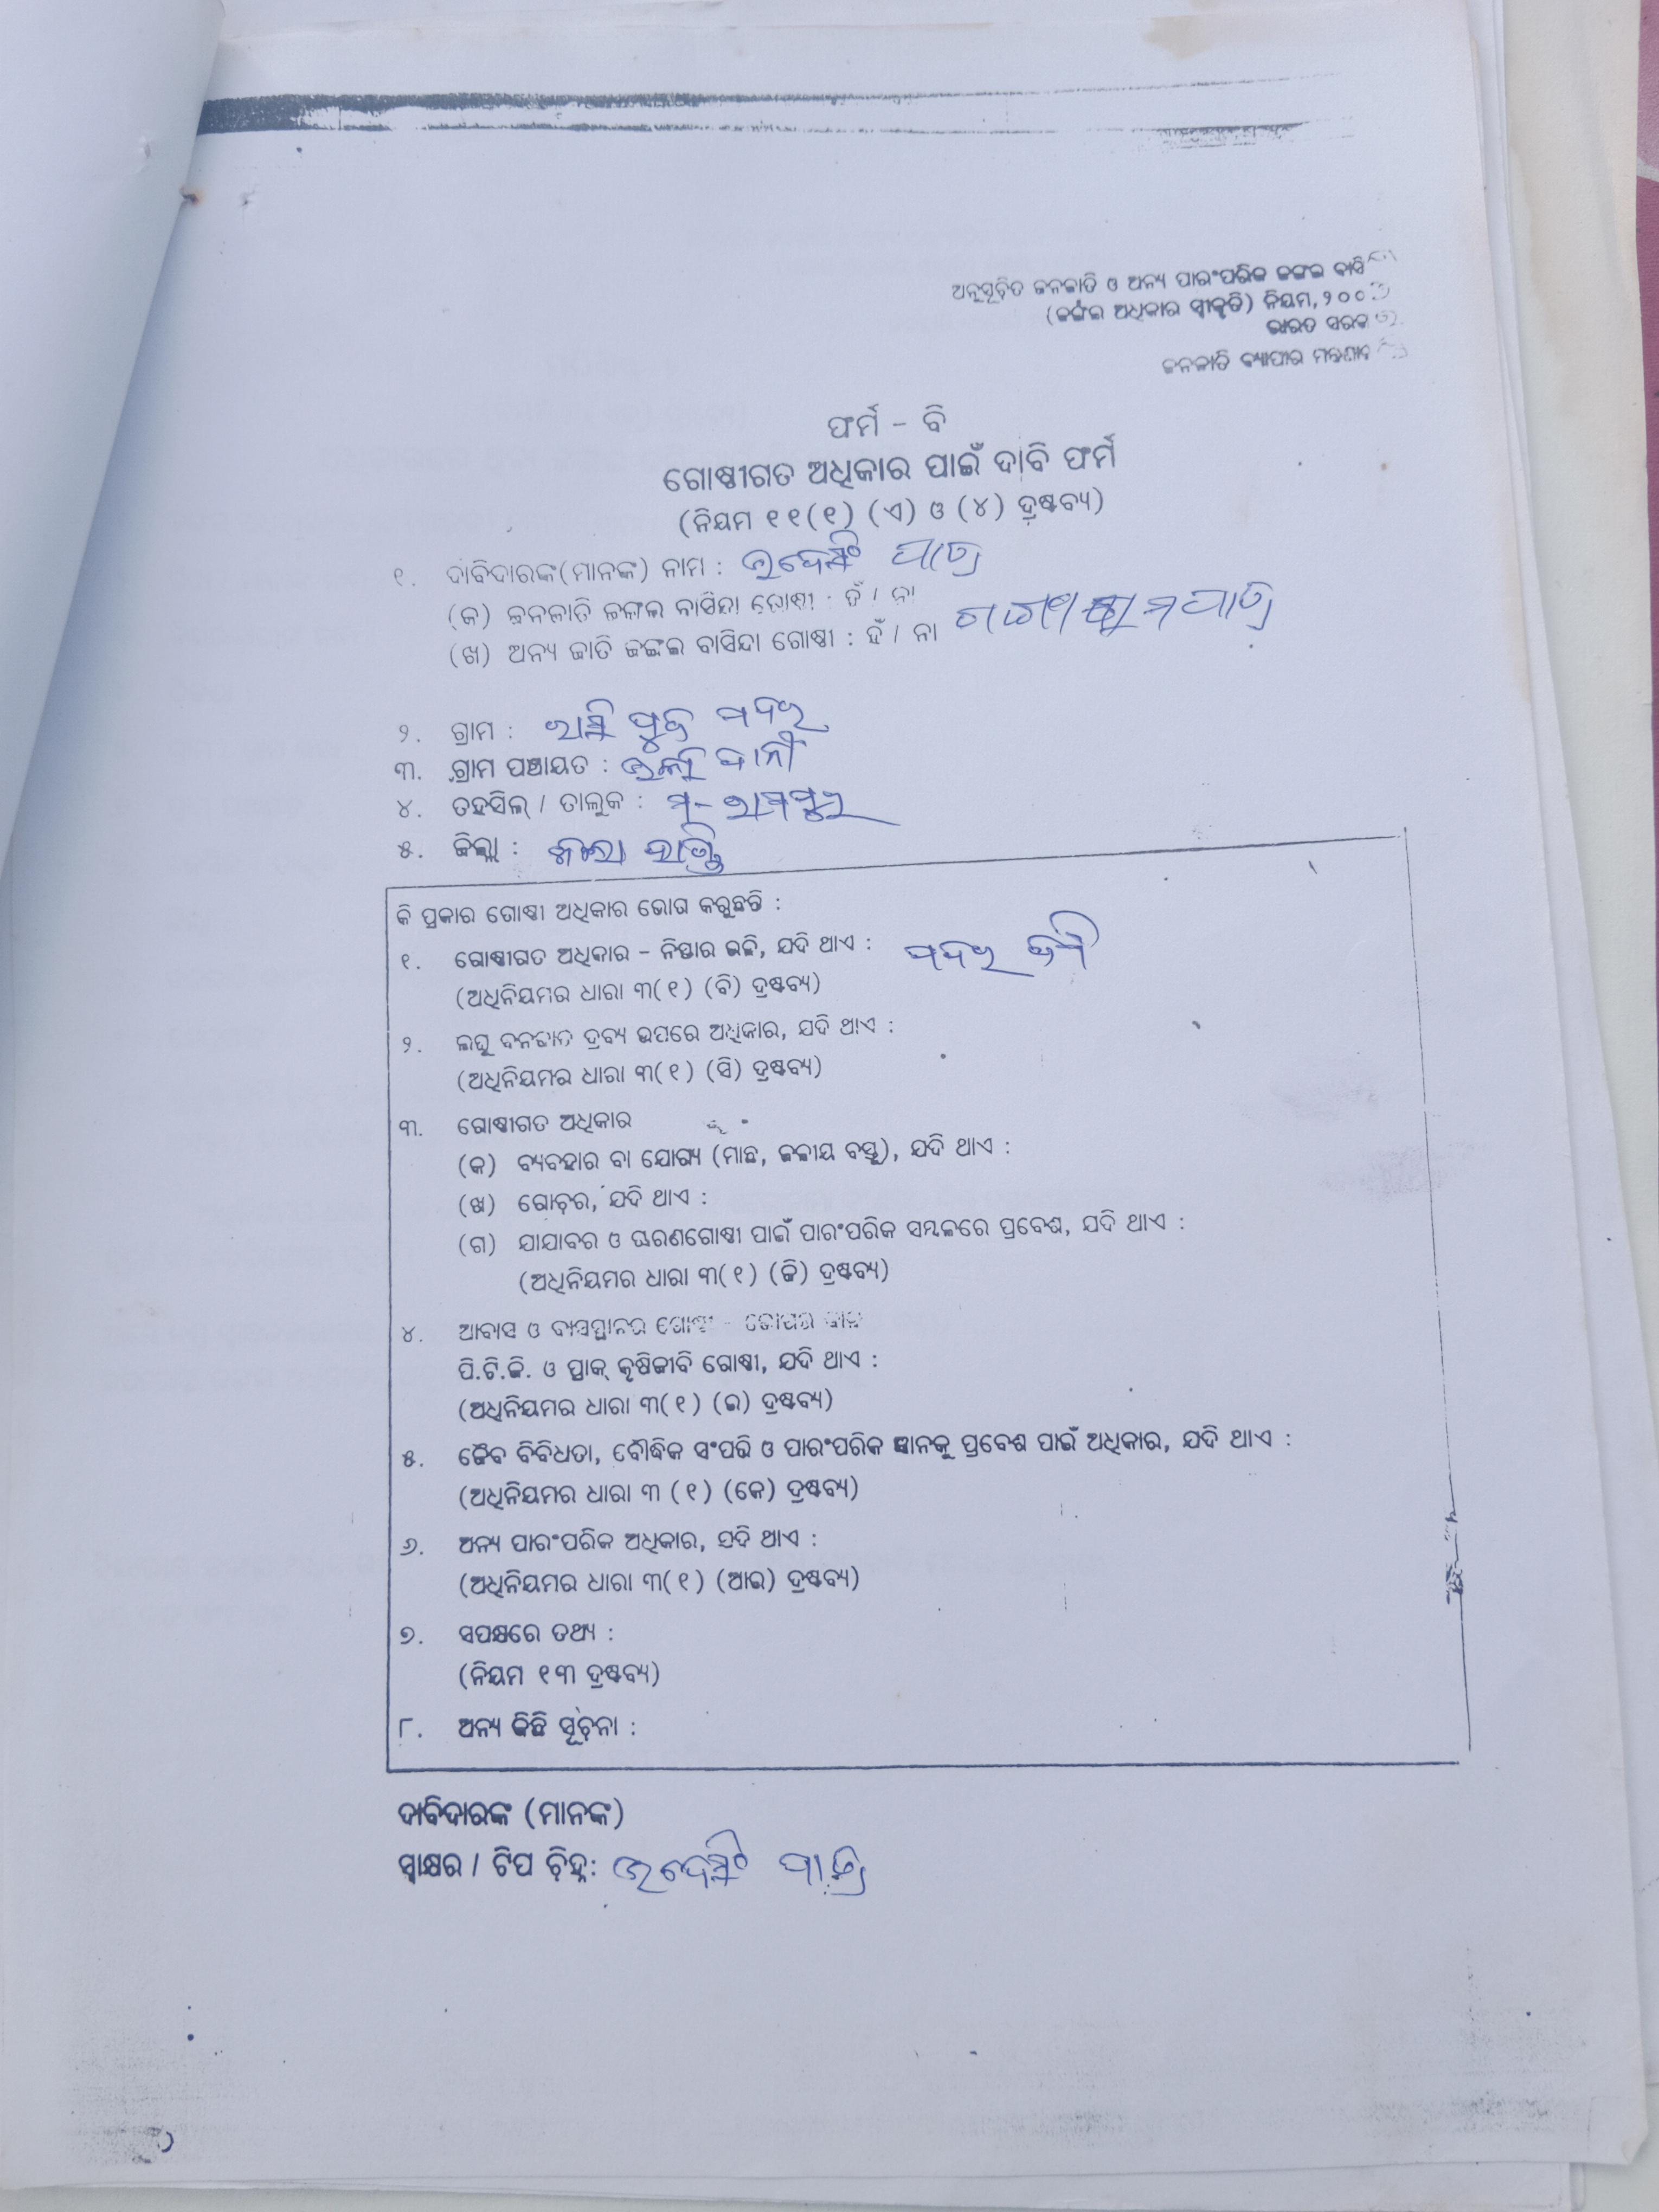 ଅନୁସୂଚିତ ଜନଜାତି ଓ ଅନ୍ୟ ପାରଂପରିକ ଜଙ୍ଗଲ ବାସି
(ଜଙ୍ଗଲ ଅଧିକାର ସ୍ୱୀକୃତି) ନିୟମ, ୨୦୦
ଭାରତ ସରକାର
ଜନଜାତି ବ୍ୟାପାର
ଫର୍ମ - ବି
ଗୋଷ୍ଠୀଗତ ଅଧିକାର ପାଇଁ ଦାବି ଫର୍ମ
(ନିୟମ ୧୧(୧) (ଏ) ଓ (୪) ଦ୍ରଷ୍ଟବ୍ୟ)
୧. ଦାବିଦାରଙ୍କ(ମାନଙ୍କ) ନାମ : ଉଦେସିଂ ପାତ୍ର
(କ) ଜନଜାତି ଜଙ୍ଗଲ ବାସିନ୍ଦା ଗୋଷ୍ଠୀ : ହଁ / ନା
(ଖ) ଅନ୍ୟ ଜାତି ଜଙ୍ଗଲ ବାସିନ୍ଦା ଗୋଷ୍ଠୀ : ହଁ / ନା
୨. ଗ୍ରାମ : ପଦର
୩. ଗ୍ରାମ ପଞ୍ଚାୟତ :
୪. ତହସିଲ୍ / ତାଲୁକ : ମ- ରାମପୁର
୫. ଜିଲ୍ଲା : କଳାହାଣ୍ଡି
କି ପ୍ରକାର ଗୋଷ୍ଠୀ ଅଧିକାର ଭୋଗ କରୁଛନ୍ତି :
୧. ଗୋଷ୍ଠୀଗତ ଅଧିକାର - ନିସ୍ତାର ଭଳି, ଯଦି ଥାଏ : ପଦର ଜମି
(ଅଧିନିୟମର ଧାରା ୩(୧) (ବି) ଦ୍ରଷ୍ଟବ୍ୟ)
୨. ଲଘୁ ବନଜାତ ଦ୍ରବ୍ୟ ଉପରେ ଅଧିକାର, ଯଦି ଥାଏ :
(ଅଧିନିୟମର ଧାରା ୩(୧) (ସି) ଦ୍ରଷ୍ଟବ୍ୟ)
୩. ଗୋଷ୍ଠୀଗତ ଅଧିକାର
(କ) ବ୍ୟବହାର ବା ଯୋଗ୍ୟ (ମାଛ, ଜଳୀୟ ବସ୍ତୁ), ଯଦି ଥାଏ :
(ଖ) ଗୋଚର, ଯଦି ଥାଏ :
(ଗ) ଯାଯାବର ଓ ଚାରଣଗୋଷ୍ଠୀ ପାଇଁ ପାରଂପରିକ ସମ୍ବଳରେ ପ୍ରବେଶ, ଯଦି ଥାଏ :
(ଅଧିନିୟମର ଧାରା ୩(୧) (ଡି) ଦ୍ରଷ୍ଟବ୍ୟ)
୪. ଆବାସ ଓ ବାସସ୍ଥାନର ଗୋଷ୍ଠୀ -
ପି.ଟି.ଜି. ଓ ପ୍ରାକ୍ କୃଷିଜୀବି ଗୋଷ୍ଠୀ, ଯଦି ଥାଏ :
(ଅଧିନିୟମର ଧାରା ୩(୧) (ଇ) ଦ୍ରଷ୍ଟବ୍ୟ)
୫. ଜୈବ ବିବିଧତା, ବୌଦ୍ଧିକ ସଂପତ୍ତି ଓ ପାରଂପରିକ ଜ୍ଞାନକୁ ପ୍ରବେଶ ପାଇଁ ଅଧିକାର, ଯଦି ଥାଏ :
(ଅଧିନିୟମର ଧାରା ୩ (୧) (କେ) ଦ୍ରଷ୍ଟବ୍ୟ)
୬. ଅନ୍ୟ ପାରଂପରିକ ଅଧିକାର, ଯଦି ଥାଏ :
(ଅଧିନିୟମର ଧାରା ୩(୧) (ଆଇ) ଦ୍ରଷ୍ଟବ୍ୟ)
୭. ସପକ୍ଷରେ ତଥ୍ୟ :
(ନିୟମ ୧୩ ଦ୍ରଷ୍ଟବ୍ୟ)
୮. ଅନ୍ୟ କିଛି ସୂଚନା :
ଦାବିଦାରଙ୍କ (ମାନଙ୍କ)
ସ୍ୱାକ୍ଷର / ଟିପ ଚିହ୍ନ : ଉଦେସିଂ ପାତ୍ର